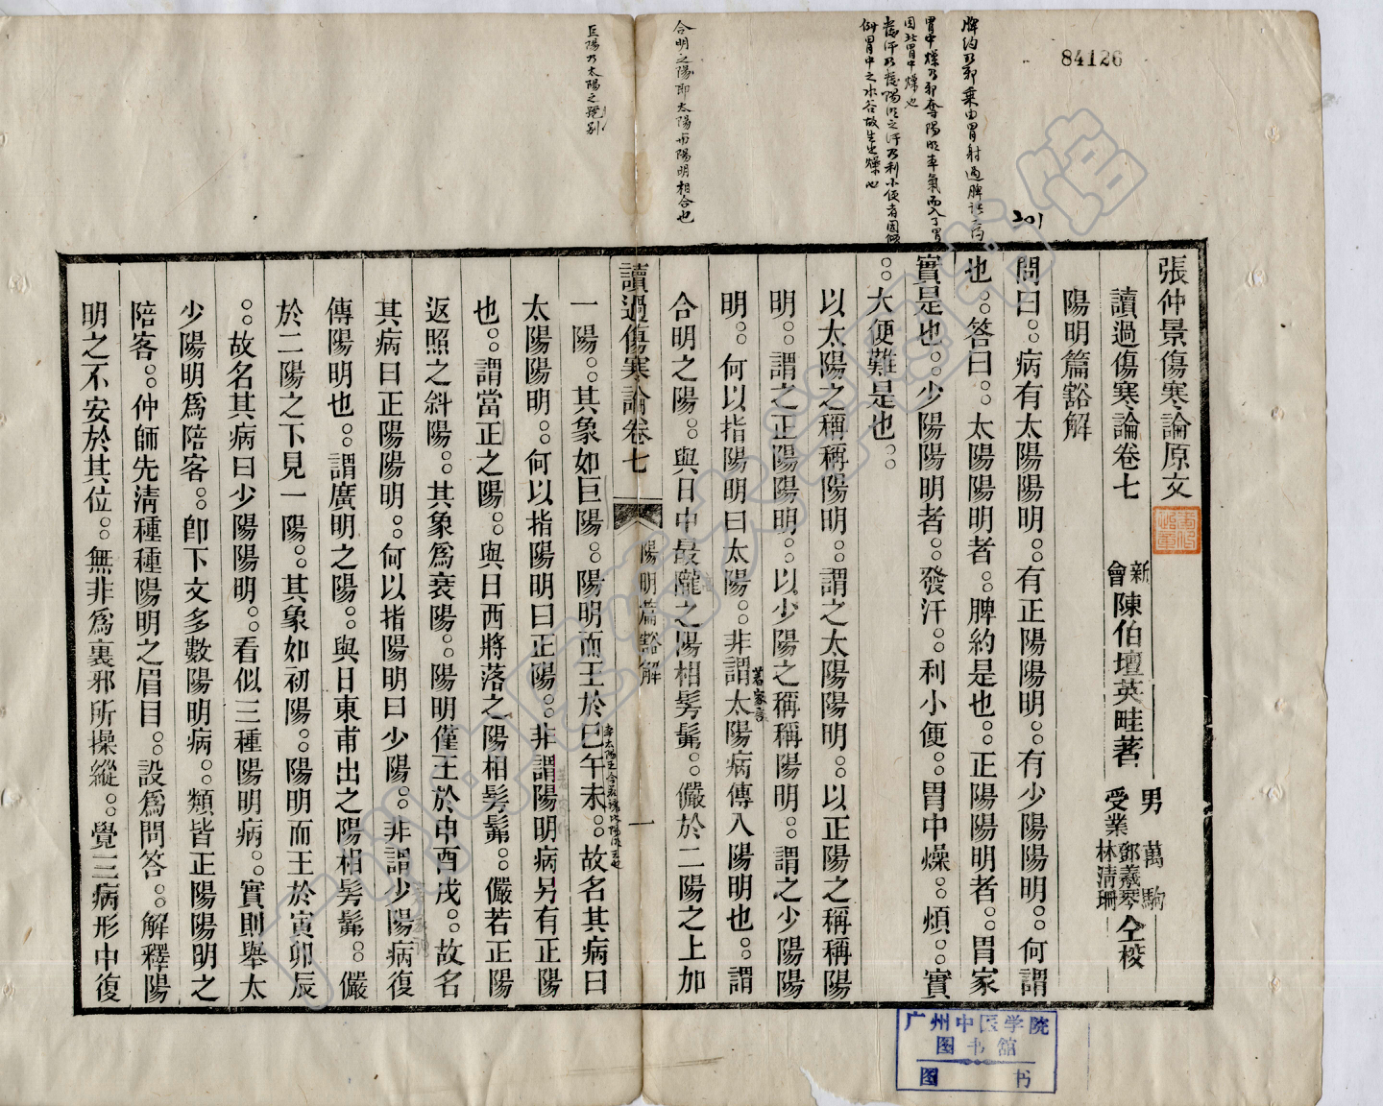 84126
201
合明之陽即太陽与陽明相合也
巨陽乃太陽之號别
張仲景傷寒論原文
讀過傷寒論卷七
新會陳伯壇英畦著
男 萬駒
受業 鄧羲琴 林清珊 仝校
陽明篇豁解
問曰。。病有太陽陽明。。有正陽陽明。。有少陽陽明。。何謂
也。。答曰。。太陽陽明者。。脾約是也。。正陽陽明者。。胃家
實是也。。少陽陽明者。。發汗。。利小便。。胃中燥。。煩。。實
。。大便難是也。。
以太陽之稱稱陽明。。謂之太陽陽明。。以正陽之稱稱陽
明。。謂之正陽陽明。。以少陽之稱稱陽明。。謂之少陽陽
明。。何以指陽明曰太陽。。非謂太陽病傳入陽明也。。謂
合明之陽。。與日中最隴之陽相髣髴。。儼於二陽之上加
讀過傷寒論卷七
陽明篇豁解
一
一陽。。其象如巨陽。。陽明而王於巳午未。。故名其病曰
太陽陽明。。何以指陽明曰正陽。。非謂陽明病另有正陽
也。。謂當正之陽。。與日西將落之陽相髣髴。。儼若正陽
返照之斜陽。。其象爲衰陽。。陽明僅王於申酉戌。。故名
其病曰正陽陽明。。何以指陽明曰少陽。。非謂少陽病復
傳陽明也。。謂廣明之陽。。與日東甫出之陽相髣髴。。儼
於二陽之下見一陽。。其象如初陽。。陽明而王於寅卯辰
。。故名其病曰少陽陽明。。看似三種陽明病。。實則舉太
少陽明爲陪客。。卽下文多數陽明病。。類皆正陽陽明之
陪客。。仲師先清種種陽明之眉目。。設爲問答。。解釋陽
明之不安於其位。。無非爲裏邪所操縱。。覺三病形中復
广州中医学院
图书馆
图 书